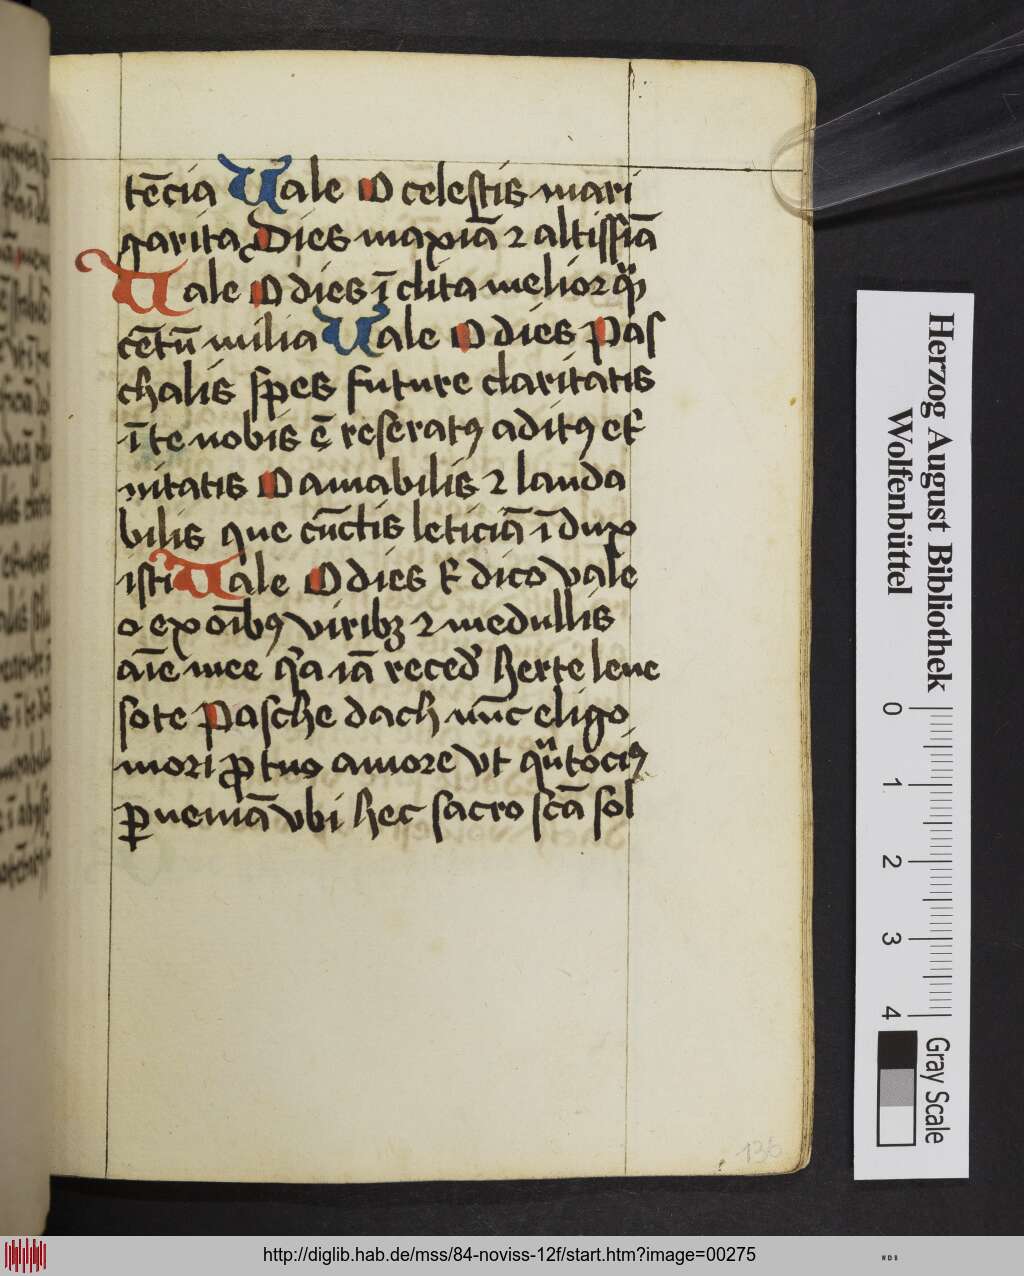 tēcia Uale O celestis mari
garita Dies maxiā ⁊ altissiā
Uale O dies ī clita melior qͣ̄
cētū milia Uale O dies Pas
chalis spes future claritatis
ī te nobis ē reseratꝰ aditꝰ et̉
nitatis O amabilis ⁊ lauda
bilis que cūctis leticiā ī dux
isti Uale O dies et̉ dico vale
o ex oībꝰ viribꝫ ⁊ medullis
aīe mee qͣa iā reced̉ herte leue
sote Pasche dach nūc eligo
mori ꝓ tuo amore vt qn̄tociꝰ
ꝑueniā vbi hec sacro scā sol
136
Herzog August Bibliothek
Wolfenbüttel
0 1 2 3 4
Gray Scale
http://diglib.hab.de/mss/84-noviss-12f/start.htm?image=00275